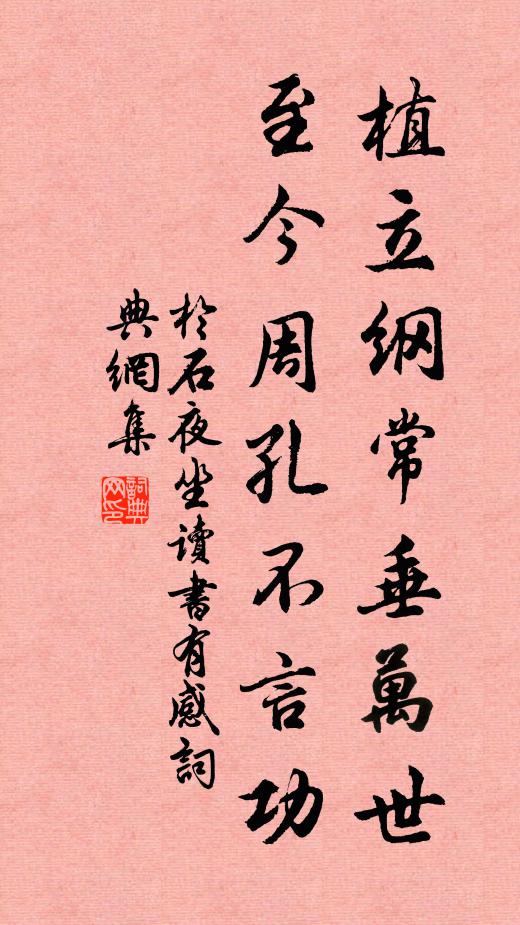 植立纲常垂萬世
至今周孔不言功
於石夜坐讀書有感詞
典網集
詞典
网印